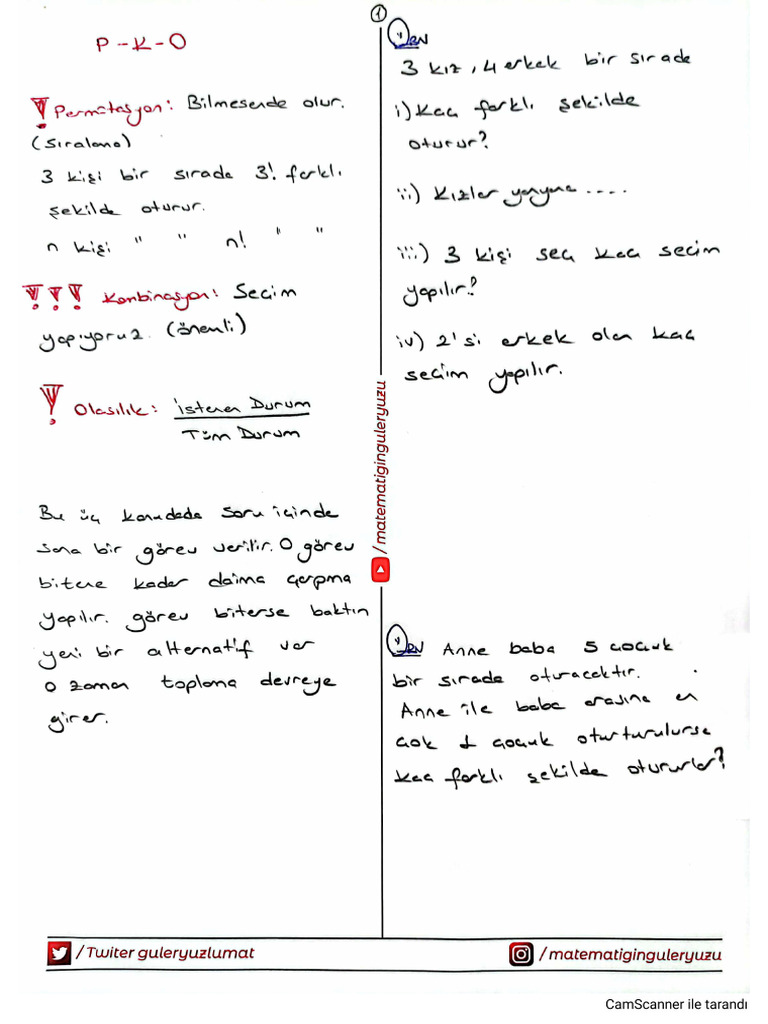 1
P - K - O
Permütasyon: Bilmesende olur.
(Sıralama)
3 kişi bir sırada 3! farklı
şekilde oturur.
n kişi " " n! " "
Kombinasyon: Secim
yapıyoruz. (önemli)
Olasılık: istenen Durum
Tüm Durum
Bu üç konudada soru içinde
sana bir görev verilir. O görev
bitene kadar daima çarpma
yapılır. görev biterse baktın
yeni bir alternatif var
o zaman toplama devreye
girer.
ÖRN
3 kız, 4 erkek bir sırada
i) Kaç farklı şekilde
oturur?
ii) Kızlar yanyana ....
iii) 3 kişi seç kaç secim
yapılır?
iv) 2'si erkek olan kaç
secim yapılır.
/matematiginguleryuzu
ÖRN Anne baba 5 çocuk
bir sırada oturacaktır.
Anne ile baba arasına en
çok 1 çocuk oturtulursa
kaç farklı şekilde otururlar?
/Twiter guleryuzlumat
/matematiginguleryuzu
CamScanner ile tarandı